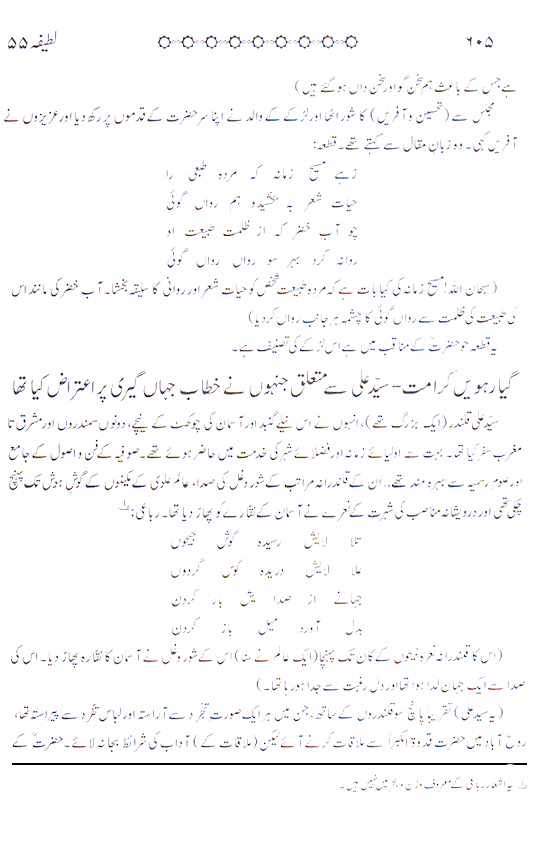 لطیفہ ۵۵ ۶۰۵
ہے جس کے باعث ہم سخن گو اور سخن داں ہو گئے ہیں)
مجلس سے (تحسین و آفریں) کا شور اٹھا اور لڑکے کے والد نے اپنا سر حضرت کے قدموں پر رکھ دیا اور عزیزوں نے
آفریں کہی۔ وہ زبانِ مقال سے کہتے تھے۔ قطعہ:
زہے مسیح زمانہ کہ مردہ طبعی را
حیات شعر بہ بخشیدہ ہم رواں گوئی
چو آب خضر کہ از ظلمت طبیعت او
روانہ کرد بہر سو رواں رواں گوئی
(سبحان اللہ! مسیح زمانہ کی کیا بات ہے کہ مردہ طبیعت شخص کو حیات شعر اور روانی کا سلیقہ بخشا۔ آب خضر کی مانند اس
کی طبیعت کی ظلمت سے رواں گوئی کا چشمہ ہر جانب رواں کر دیا)
یہ قطعہ جو حضرتؒ کے مناقب میں ہے اس لڑکے کی تصنیف ہے۔
گیارہویں کرامت - سیّد علی سے متعلق جنہوں نے خطاب جہاں گیری پر اعتراض کیا تھا
سیّد علی قلندر (ایک بزرگ تھے)، انہوں نے اس نیلے گنبد اور آسمان کی چوکھٹ کے نیچے، دونوں سمندروں اور مشرق تا
مغرب سفر کیا تھا۔ بہت سے اولیائے زمانہ اور فضلائے شہر کی خدمت میں حاضر ہوئے تھے۔ صوفیہ کے فن و اصول کے جامع
اور علوم رسمیہ سے بہرہ مند تھے۔ ان کے قلندرانہ مراتب کے شور و غل کی صدا، عالم علوی کے مکینوں کے گوش ہوش تک پہنچ
چکی تھی اور درویشانہ مناصب کی شہرت کے نعرے نے آسمان کے نقارے کو پھاڑ دیا تھا۔ رباعی: ؂۱
تلا لایش رسیدہ گوش جیحوں
علا لایش دریدہ کوس گردوں
جہانے از صدا یش بار کردن
بدل آورد میل باز کردن
(اس کا قلندرانہ نعرہ جیحوں کے کان تک پہنچا (ایک عالم نے سنا) اس کے شور و غل نے آسمان کا نقارہ پھاڑ دیا۔ اس کی
صدا سے ایک جہان لدا ہوا تھا اور دل رغبت سے جدا ہو رہا تھا۔)
(یہ سید علی) تقریباً پانچ سو قلندروں کے ساتھ، جن میں ہر ایک صورت تجرّد سے آراستہ اور لباس تفرّد سے پیراستہ تھا،
روح آباد میں حضرت قدوۃ الکبراؒ سے ملاقات کرنے آئے لیکن (ملاقات کے) آداب کی شرائط بجا نہ لائے۔ حضرتؒ کے
؂۱ یہ اشعار رباعی کے معروف وزن و بحر میں نہیں ہیں۔